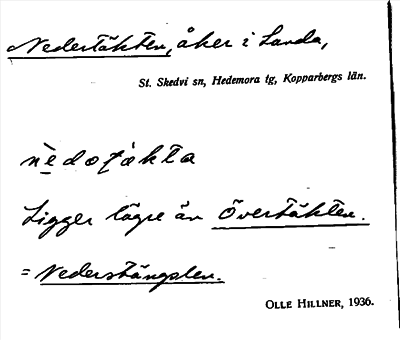 Nedertäkten, åker i Landa,
St. Skedvi sn, Hedemora tg, Kopparbergs län.
nedotäkta
Ligger lägre än Övertäkten.
= Nederstängslen.
OLLE HILLNER, 1936.